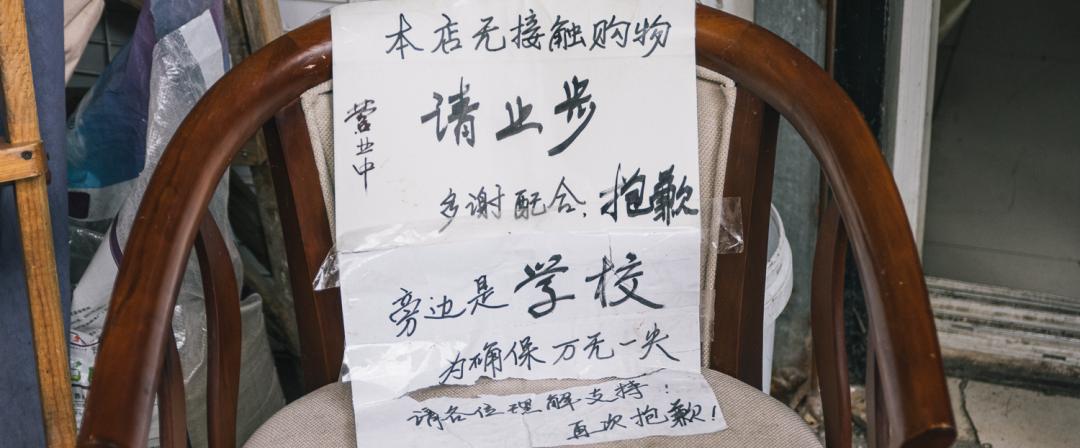 本店无接触购物
请止步
营业中
多谢配合,抱歉
旁边是学校
为确保万无一失
请各位理解支持!
再次抱歉!